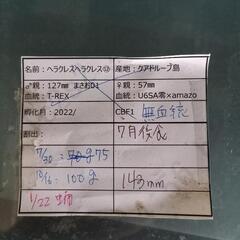 名前：ヘラクレスヘラクレス⑬ 産地：グアドループ島
♂親：127㎜ まさおD1 ♀親：57㎜
血統：T-REX 血統：U6SA零×amazo
孵化月：2022/ CBF1 無血縁
割出： 7月後食
7/30：70g75
10/6：100g 143mm
1/22 蛹